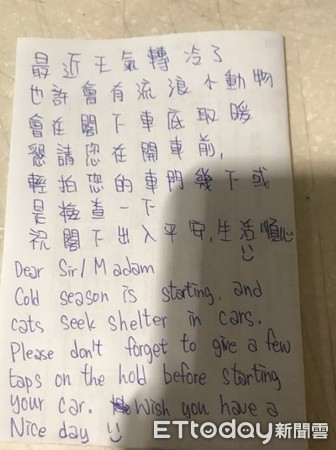 最近天氣轉冷了
也許會有流浪小動物
會在閣下車底取暖
懇請您在開車前,
輕拍您的車門幾下或
是檢查一下
祝閣下出入平安,生活順心
Dear Sir/Madam
Cold season is starting, and
cats seek shelter in cars.
Please don't forget to give a few
taps on the hold before starting
your car. Wish you have a
Nice day
ETtoday新聞雲